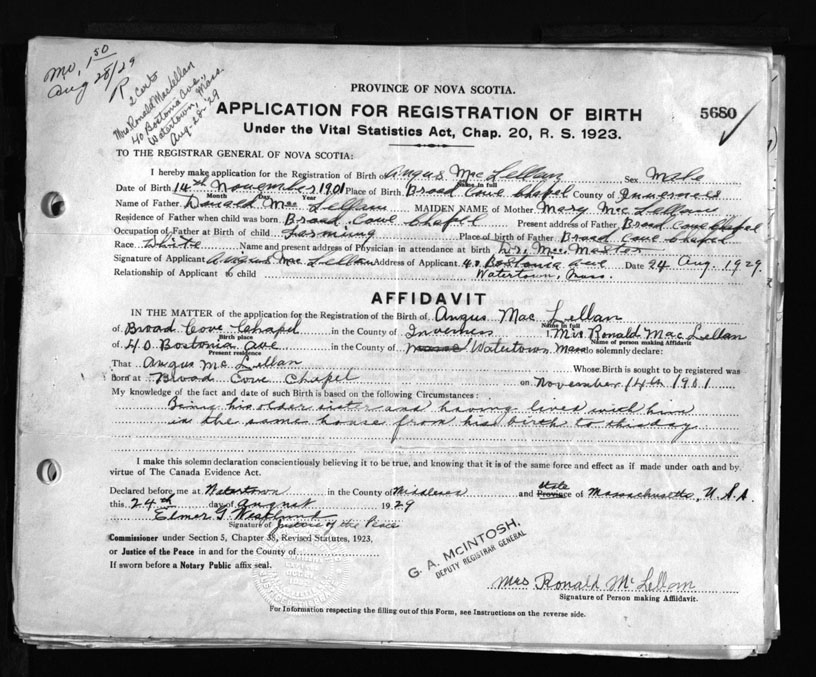 Mo, 1.50
Aug 28/29
R
2 Certs
Mrs Ronald MacLellan
40 Bostonia Ave.,
Watertown, Mass.
Aug-28-'29
PROVINCE OF NOVA SCOTIA.
APPLICATION FOR REGISTRATION OF BIRTH
5680
Under the Vital Statistics Act, Chap. 20, R. S. 1923.
TO THE REGISTRAR GENERAL OF NOVA SCOTIA:
I hereby make application for the Registration of Birth of Angus Mac Lellan Sex Male
Name in full
Date of Birth 14th November 1901 Place of Birth Broad Cove Chapel County of Inverness
Month Day Year
Name of Father Donald Mac Lellan MAIDEN NAME of Mother Mary Mc Lellan
Residence of Father when child was born Broad Cove Chapel Present address of Father Broad Cove Chapel
Occupation of Father at Birth of child Farming Place of birth of Father Broad Cove Chapel
Race White Name and present address of Physician in attendance at birth Dr. Mac Master
Signature of Applicant Angus Mac Lellan Address of Applicant 40 Bostonia Ave Date 24 Aug. 1929
Relationship of Applicant to child Watertown, Mass.
AFFIDAVIT
IN THE MATTER of the application for the Registration of the Birth of Angus Mac Lellan
Name in full
of Broad Cove Chapel in the County of Inverness I Mrs Ronald Mac Lellan
Birth place Name of person making Affidavit
of 40 Bostonia Ave in the County of Watertown Mass do solemnly declare:
Present residence
That Angus Mc Lellan Whose Birth is sought to be registered was
Born at Broad Cove Chapel on November 14th 1901
My knowledge of the fact and date of such Birth is based on the following Circumstances:
Being his older sister and having lived with him
in the same house from his birth to this day
I make this solemn declaration conscientiously believing it to be true, and knowing that it is of the same force and effect as if made under oath and by
virtue of The Canada Evidence Act.
Declared before me at Watertown in the County of Middlesex and State Province of Massachusetts, U.S.A.
this 24th day of August 1929
Elmer G. Westlund
Signature of Justice of the Peace
Commissioner under Section 5, Chapter 38, Revised Statutes, 1923,
or Justice of the Peace in and for the County of
If sworn before a Notary Public affix seal.
G. A. MCINTOSH,
DEPUTY REGISTRAR GENERAL
Mrs Ronald McLellan
Signature of Person making Affidavit.
For Information respecting the filling out of this Form, see Instructions on the reverse side.